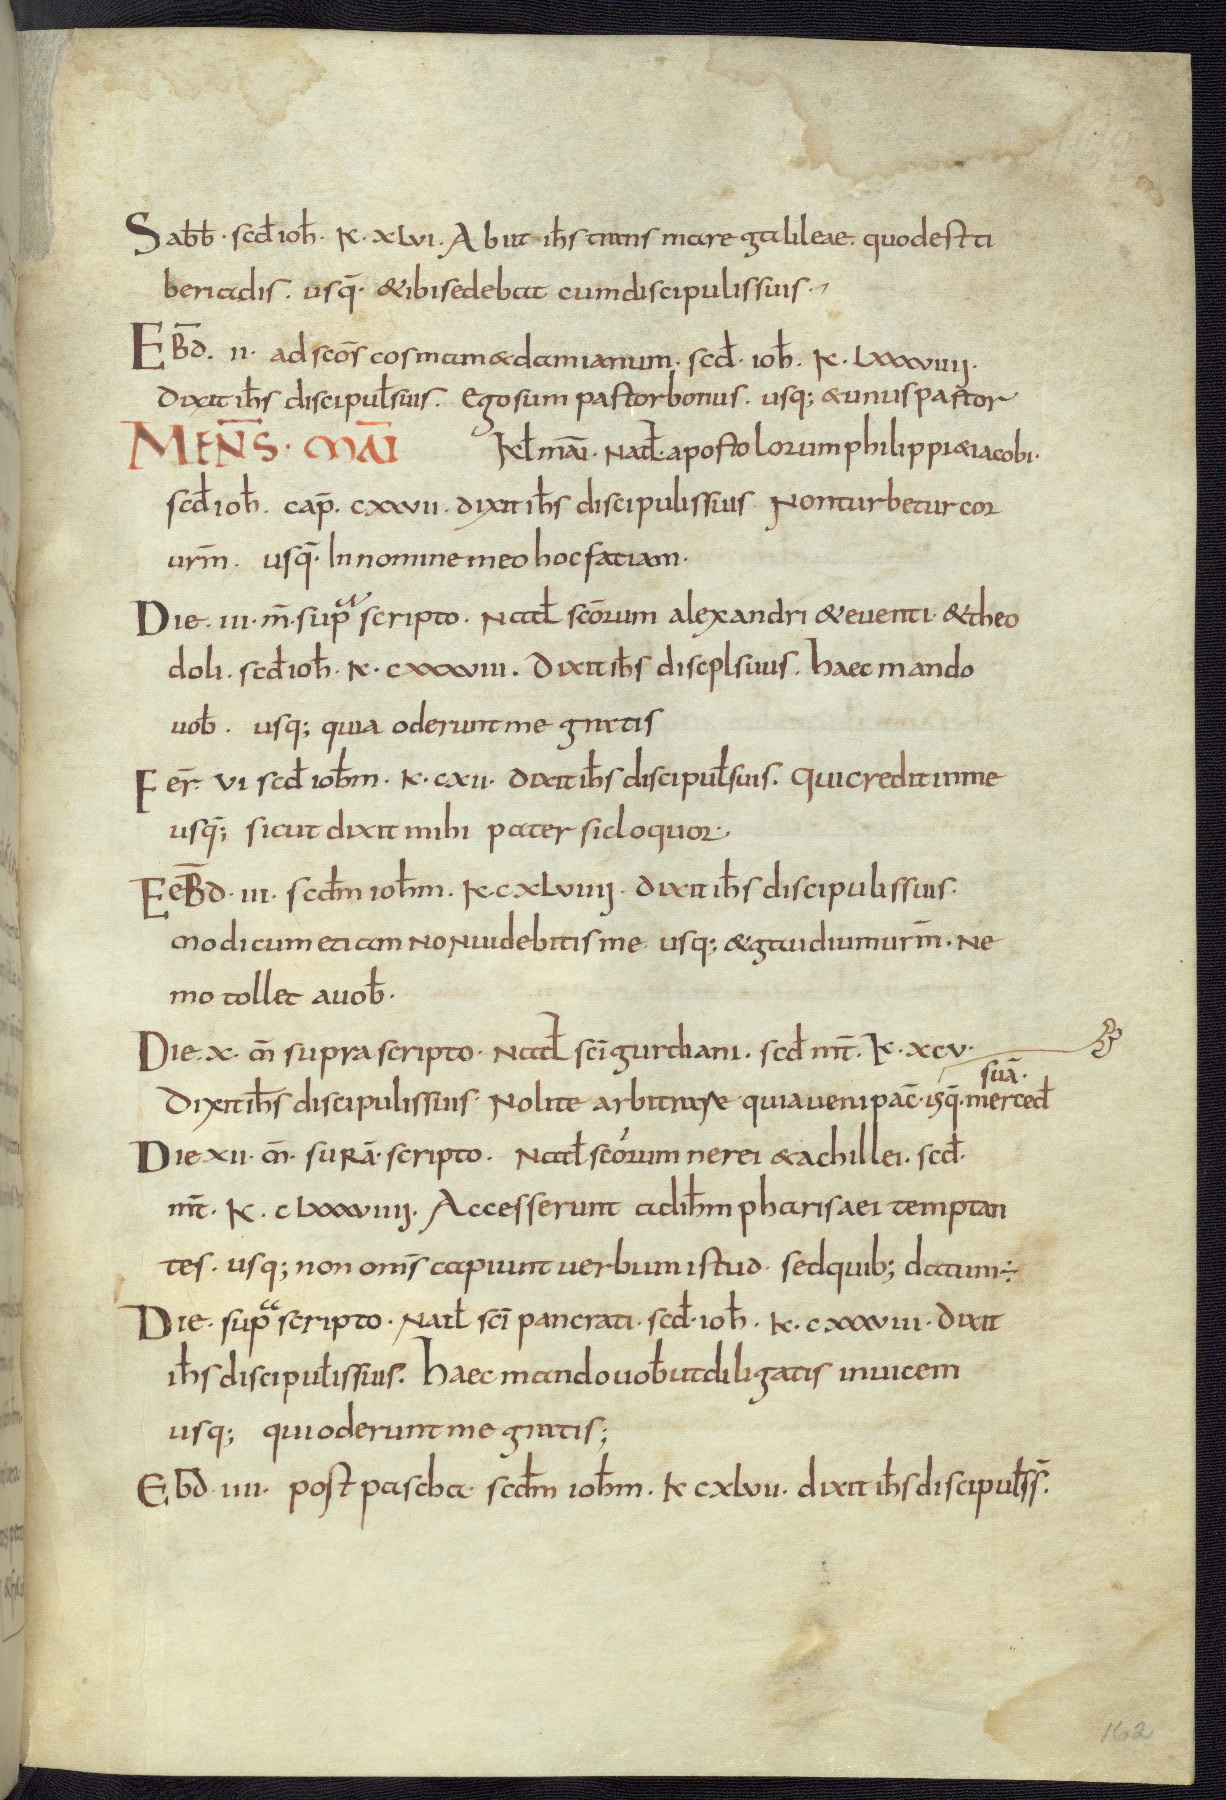 Sabb̄. scd̄ ioh̄. K̄. xLvi. Abiit ih̄s trans mare galileae. quod est ti
beriadis. usq̄. & ibi sedebat cum discipulis suis.
Eb̄d. ii. ad sc̄os cosmam & damianum. scd̄. ioh̄. K̄. Lxxxviiii.
Dixit ih̄s discipul̄ suis. Ego sum pastor bonus. usq; & unus pastor
MEN̄S. MĀI Kl̄ māi. Natl̄. apostolorum philippi & iacobi.
scd̄ ioh̄. cap̄. cxxvii. dixit ih̄s discipulis suis Non turbetur cor
ur̄m. usq̄. In nomine meo hoc fatiam.
Die. iii. m̄. supͣ scripto. Natl̄ sc̄orum alexandri & eventi. & theo
doli. scd̄ ioh̄. K̄. cxxxviii. Dixit ih̄s discpl̄ suis. haec mando
uob̄. usq; quia oderunt me gratis
Fer̄. vi scd̄ ioh̄m. K̄. cxii. Dixit ih̄s discipul̄ suis. Qui credit in me
usq̄; sicut dixit mihi pater sic loquor.
Eeb̄d. iii. scd̄m ioh̄m. K̄. cxLviiii. Dixit ih̄s discipulis suis.
Modicum etiam non uidebitis me usq; & gaudium ur̄m. Ne
mo tollet a uob̄.
Die. x. m̄ supra scripto. Natl̄ sc̄i gurdiani. scd̄ mt̄. K̄. xcv.
suā.
Dixit ih̄s discipulis suis Nolite arbitrare quia ueni pac̄. usq̄. merced̄
Die xii. m̄. surā. scripto. Natl̄ sc̄orum nerei & achillei. scd̄.
mt̄. K̄. cLxxxviiii. Accesserunt ad ih̄m pharisaei temptan
tes. usq; non om̄s capiunt uerbum istud. sed quib; datum ÷
Die. supͣ scripto. Natl̄ sc̄i pancrati. scd̄. ioh̄. K̄. cxxxviii. Dixit
ih̄s discipul̄is suis. haec mando uob̄ ut diligatis inuicem
usq; qui oderunt me gratis;
Eb̄d. iiii. post pascha scd̄m ioh̄m. K̄ cxlvii. dixit ih̄s discipul̄ ss̄.
162